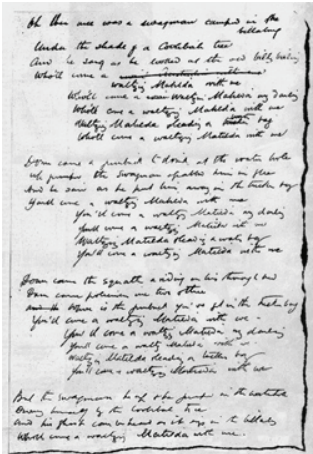 Oh there once was a swagman camped in the billabong
Under the shade of a Coolibah tree
And he sang as he looked at the old billy boiling
Who'll come a waltzing Matilda with me
Who'll come a waltzing Matilda my darling
Who'll come a waltzing Matilda with me
Waltzing Matilda leading a bag
Who'll come a waltzing Matilda with me
Down came a jumbuck to drink at the water hole
Up jumped the swagman grabbed him in glee
And he said as he put him away in the tucker bag
You'll come a waltzing Matilda with me
You'll come a waltzing Matilda my darling
You'll come a waltzing Matilda with me
Waltzing Matilda leading a water bag
You'll come a waltzing Matilda with me
Down came the squatter a riding on his thoroughbred
Down came policemen one two three
is the jumbuck you've got in the tucker bag
You'll come a waltzing Matilda with me
You'll come a waltzing Matilda my darling
You'll come a waltzing Matilda with me
Waltzing Matilda leading a tucker bag
You'll come a waltzing Matilda with me
But the swagman he up and he jumped in the waterhole
Drowning himself by the Coolibah tree
And his ghost can be heard as it sings in the billabong
Who'll come a waltzing Matilda with me.